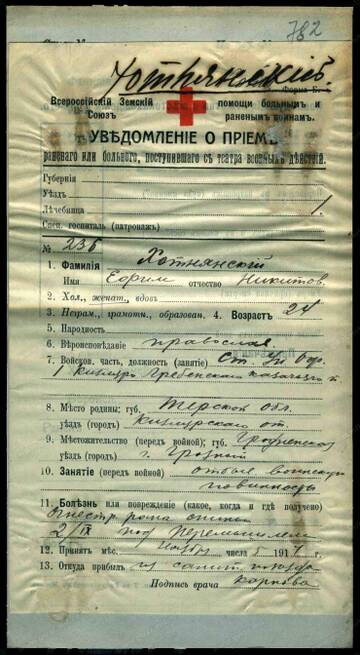 782
Хотнянскій
Форма Б.
Всероссійскій Земскій Союзъ
помощи больнымъ и раненымъ воинамъ.
УВѢДОМЛЕНІЕ О ПРІЕМѢ
раненаго или больного, поступившаго съ театра военныхъ дѣйствій.
Губернія
Уѣздъ
Лѣчебница 1.
Спец. госпиталь (патронажъ)
№ 236
1. Фамилія Хотнянский
Имя Ефим отчество Никитов.
2. Хол., женат., вдов.
3. Неграм., грамотн., образован. 4. Возрастъ 24
5. Народность
6. Вѣроисповѣданіе православ
7. Войсков. часть, должность (занятіе) Ст. Ун. Оф.
1 Кизляро Гребенскаго казачьяго п
8. Мѣсто родины; губ. Терской обл.
уѣздъ (городъ) Кизлярскаго от.
9. Мѣстожительство (передъ войной); губ. Грозненской
уѣздъ (городъ) г. Грозный
10. Занятіе (передъ войной) отбыв. воинскую
повинность
11. Болѣзнь или поврежденіе (какое, когда и гдѣ получено)
Огнестр. рана
2/IX под Перемышлем
12. Принятъ мѣс. Ноябрь числа 5 191 г.
13. Откуда прибылъ из санит. поѣзда
Подпись врача Карпова